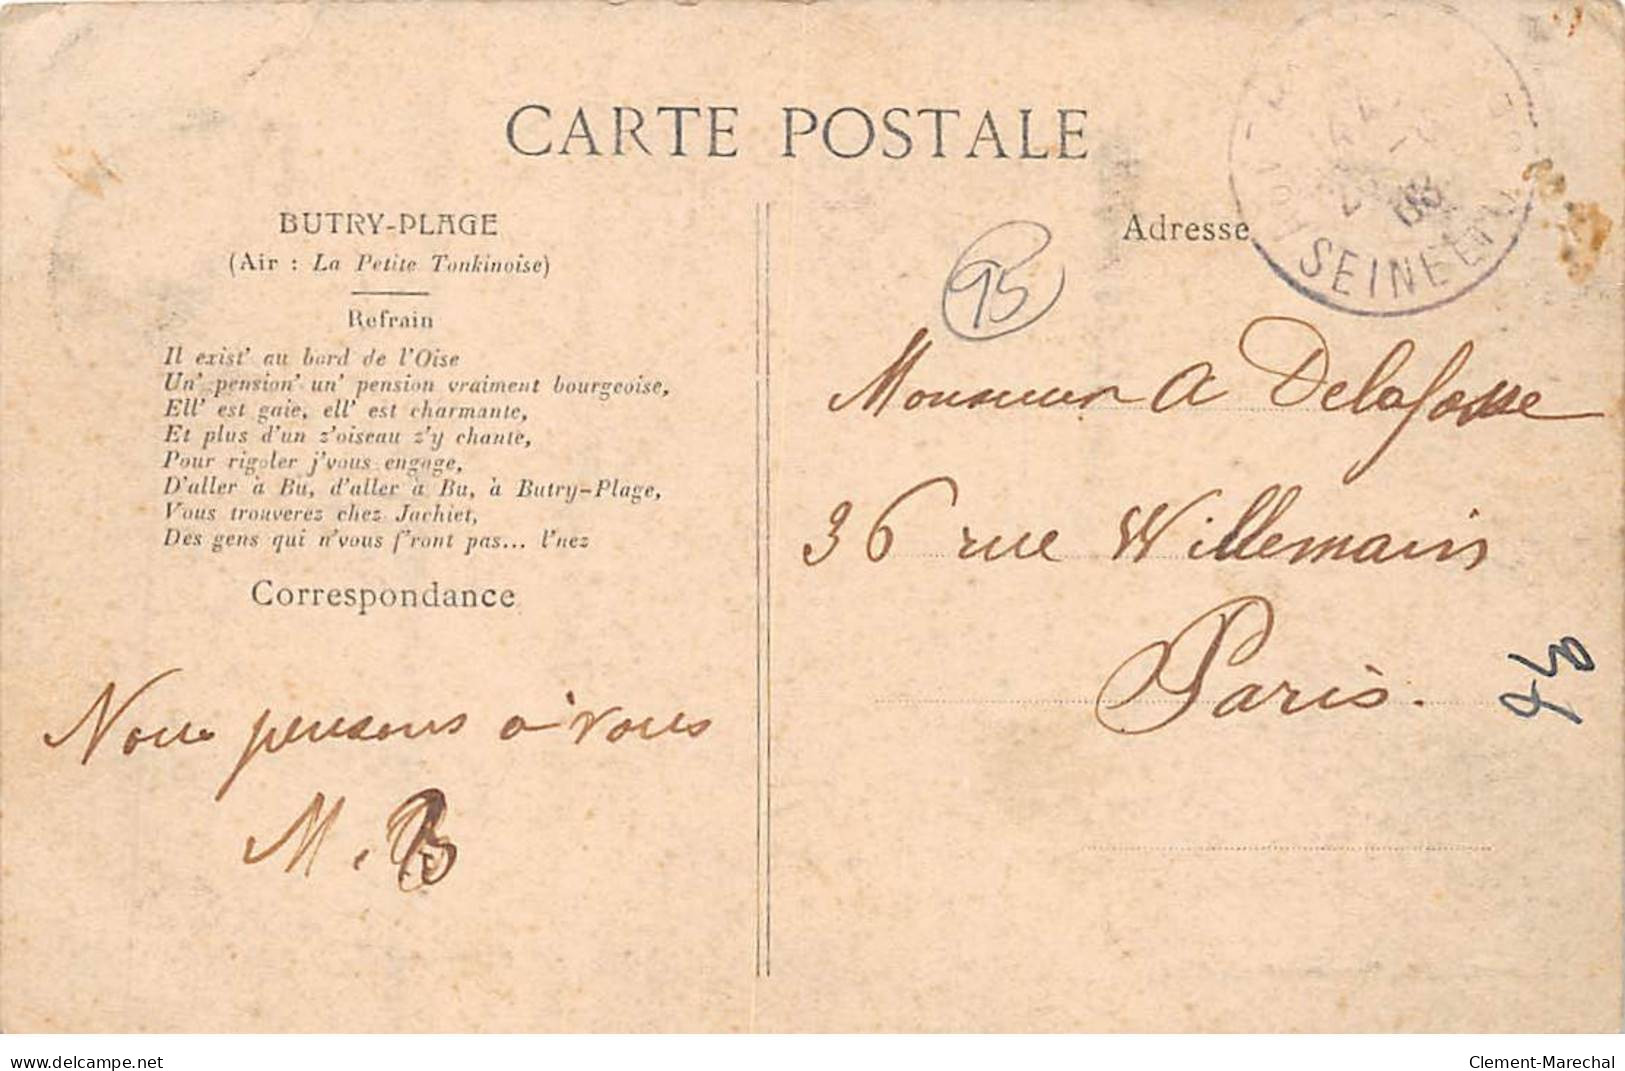 CARTE POSTALE
BUTRY-PLAGE
(Air : La Petite Tonkinoise)
Refrain
Il exist' au bord de l'Oise
Un' pension' un' pension vraiment bourgeoise,
Ell' est gaie, ell' est charmante,
Et plus d'un z'oiseau z'y chante,
Pour rigoler j'vous engage,
D'aller à Bu, d'aller à Bu, à Butry-Plage,
Vous trouverez chez Jachiet,
Des gens qui n'vous f'ront pas... l'nez
Correspondance
Nous pensons à vous
M. B
Adresse
SEINE
95
Monsieur A Delafosse
36 rue Willemain
Paris.
delcampe.net
Clement-Marechal